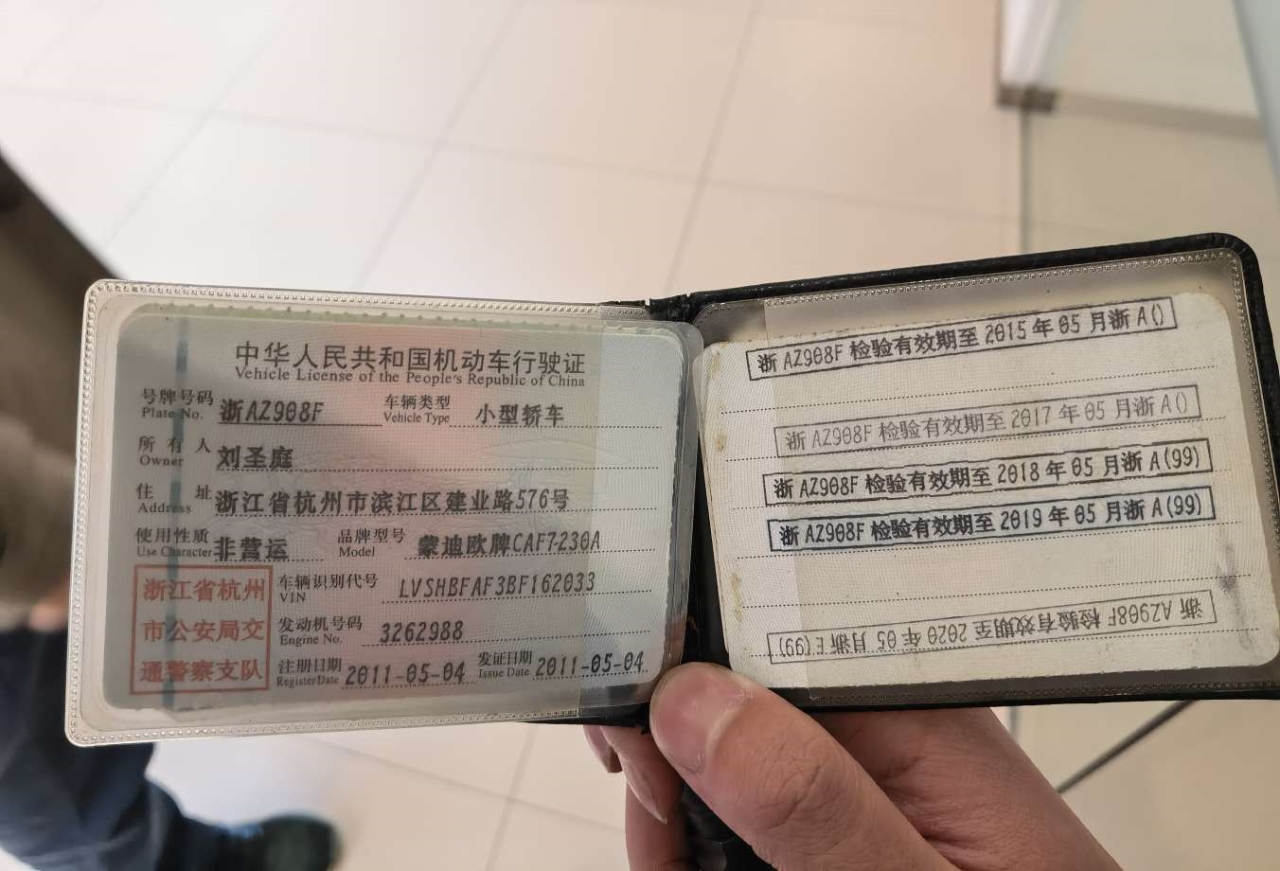 中华人民共和国机动车行驶证
Vehicle License of the People's Republic of China
号牌号码 浙AZ908F 车辆类型 小型轿车
Plate No. Vehicle Type
所有人 刘圣庭
Owner
住址 浙江省杭州市滨江区建业路576号
Address
使用性质 非营运 品牌型号 蒙迪欧牌CAF7230A
Use Character Model
浙江省杭州
市公安局交
通警察支队
车辆识别代号 LVSHBFAF3BF162033
VIN
发动机号码 3262988
Engine No.
注册日期 2011-05-04 发证日期 2011-05-04
Register Date Issue Date
浙 AZ908F 检验有效期至 2015 年 05 月浙 A()
浙 AZ908F 检验有效期至 2017 年 05 月浙 A()
浙 AZ908F 检验有效期至 2018 年 05 月浙 A(99)
浙 AZ908F 检验有效期至 2019 年 05 月浙 A(99)
浙 AZ908F 检验有效期至 2020 年 05 月浙 E(99)